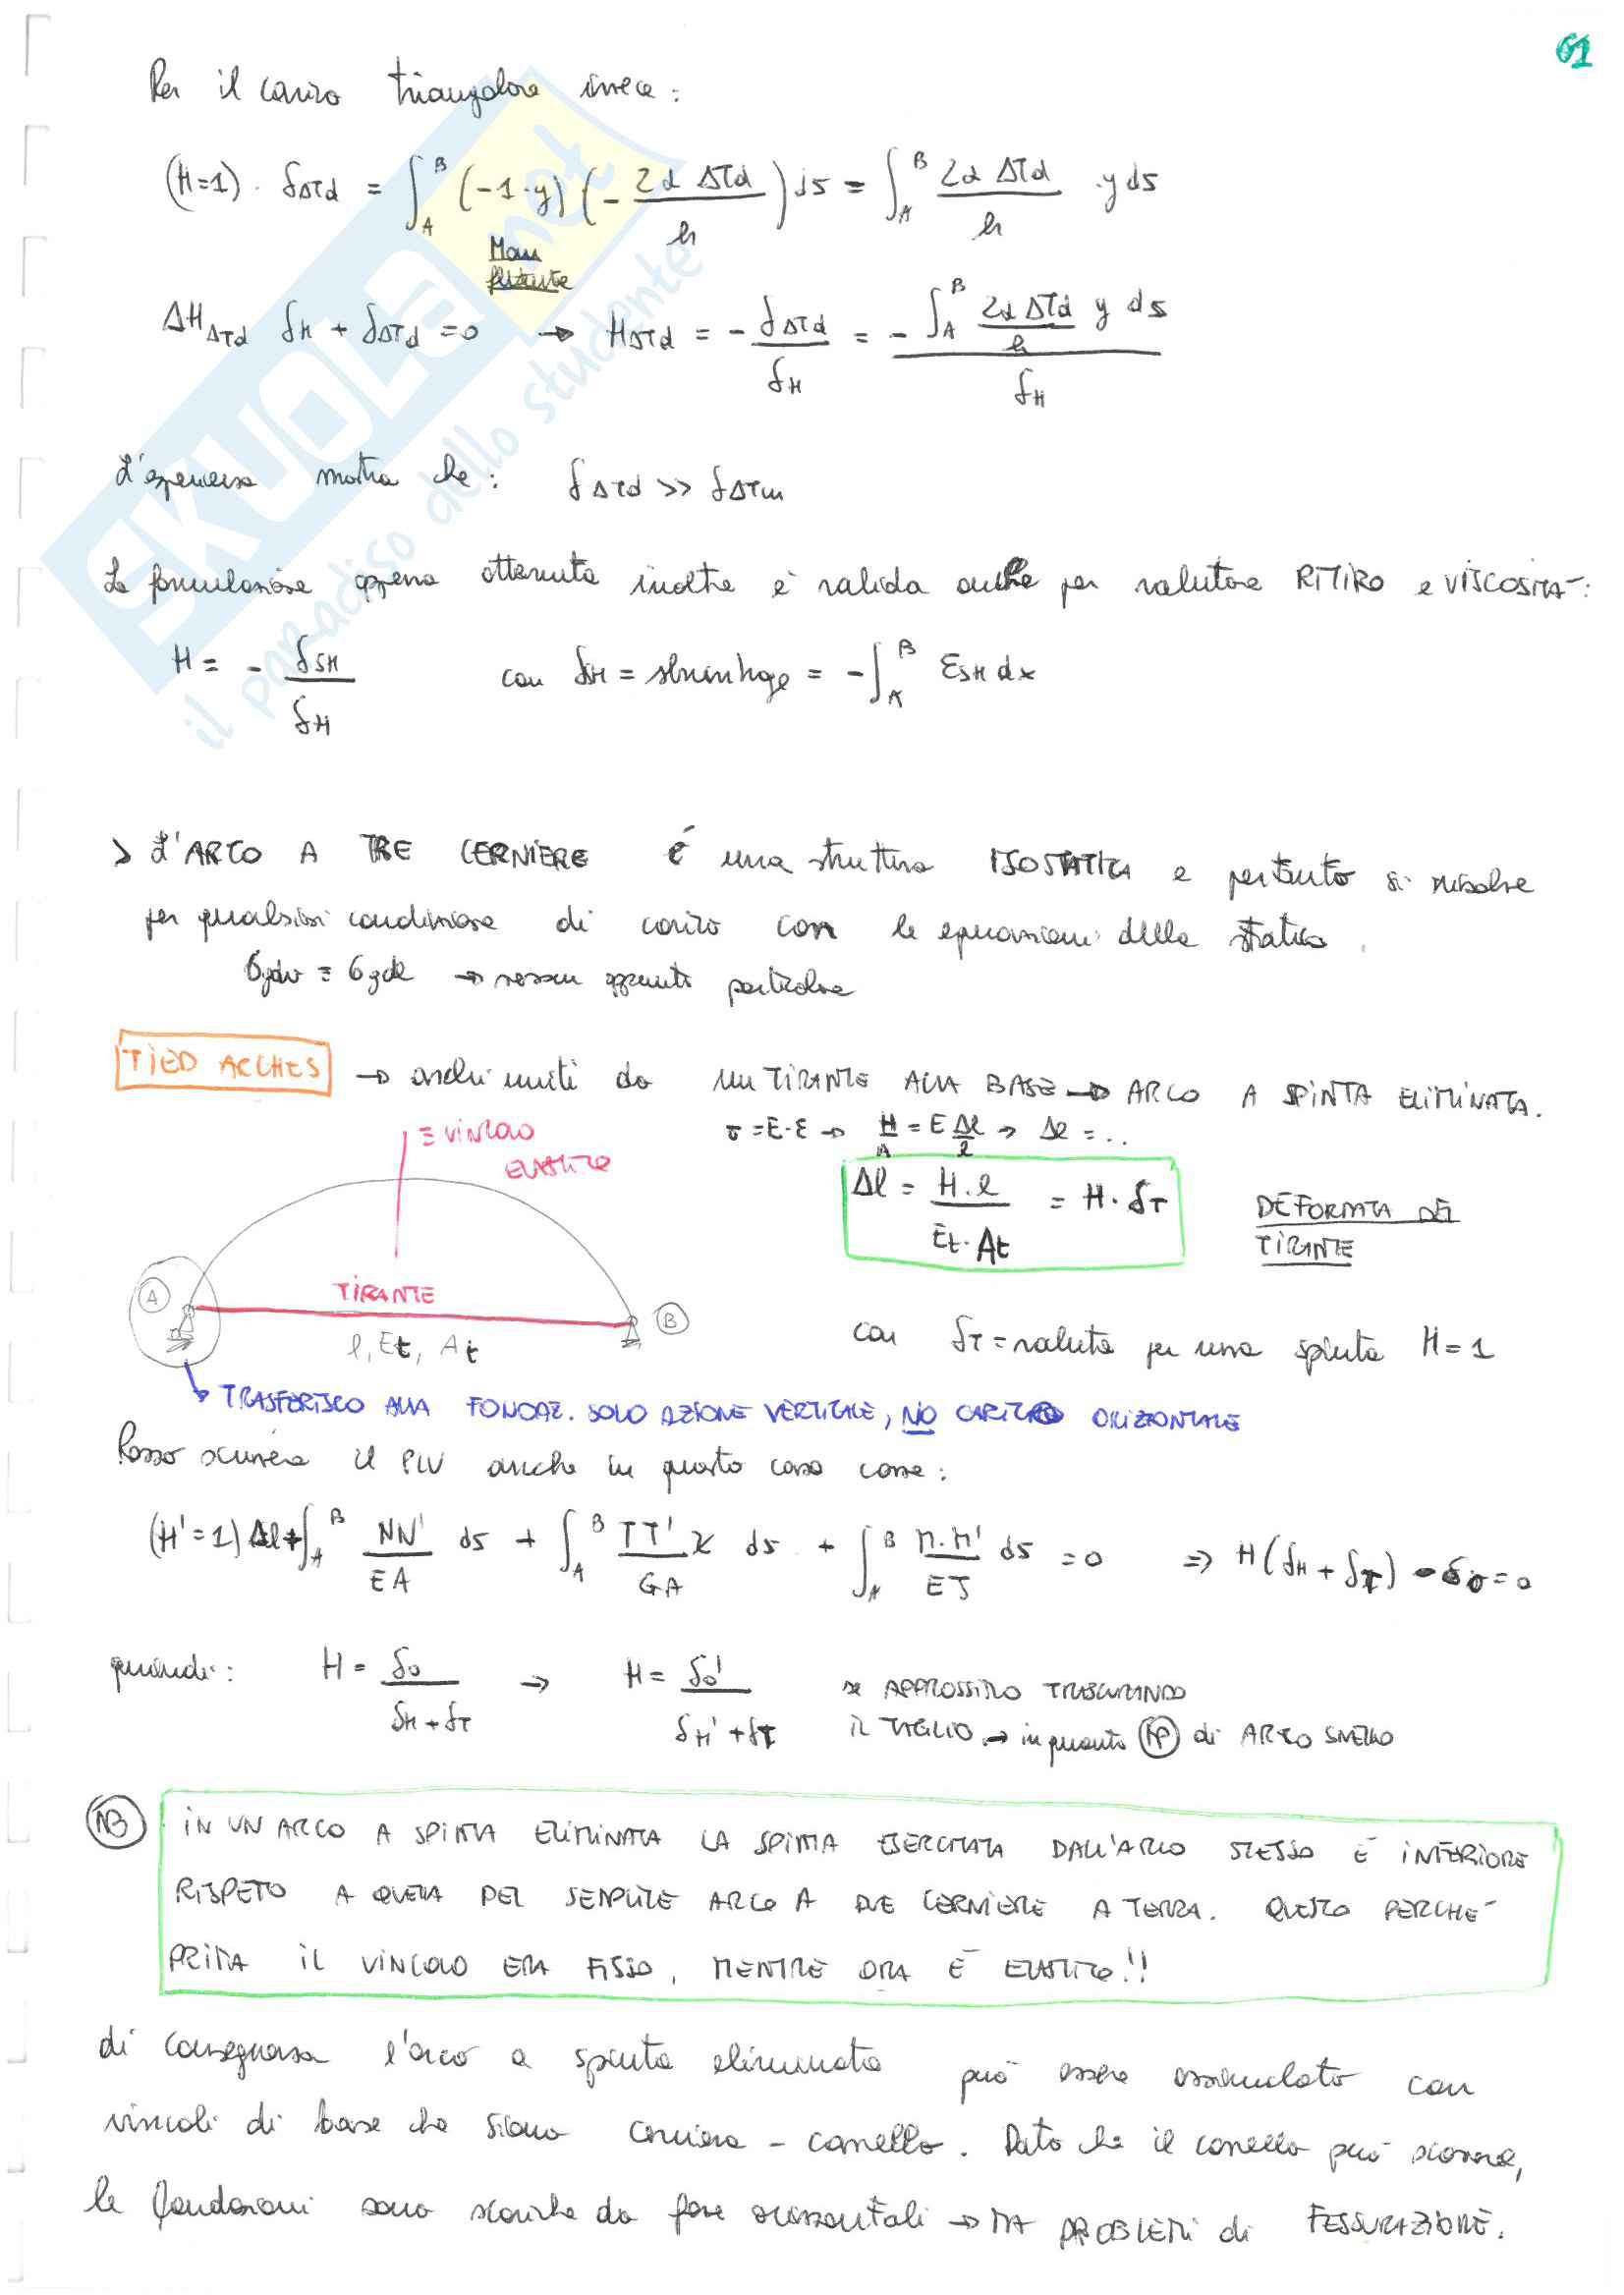 61
Per il carico triangolare invece:
(H=1) · δΔTd = ∫_A^B (-1·y) (- 2α ΔTd / h) ds = ∫_A^B 2α ΔTd / h · y ds
Mom
flettente
ΔH_ΔTd δH + δΔTd = 0 → HΔTd = - δΔTd / δH = - ∫_A^B 2α ΔTd / h y ds / δH
L'esperienza mostra che: δΔTd >> δΔTm
La formulazione appena ottenuta inoltre è valida anche per valutare RITIRO e VISCOSITA':
H = - δSH / δH con δSH = shrinkage = -∫_A^B εSH dx
> L'ARCO A TRE CERNIERE é una struttura ISOSTATICA e pertanto si risolve
per qualsiasi condizione di carico con le equazioni della statica.
6gdv = 6gdl → nessun particolare
TIED ARCHES → archi uniti da un TIRANTE ALLA BASE → ARCO A SPINTA ELIMINATA.
≡ VINCOLO
ELASTICO
σ = E·ε → H/A = E Δl/l → Δl = ..
Δl = H·l / Et·At = H·δT
DEFORMATA DEL
TIRANTE
A
TIRANTE
B
l, Et, At
con δT = valutata per una spinta H=1
TRASFERISCO ALLA FONDAZ. SOLO AZIONE VERTICALE, NO CARICO ORIZZONTALE
Posso scrivere il PLV anche in questo caso come:
(H'=1) Δl + ∫_A^B NN' / EA ds + ∫_A^B TT' / GA χ ds + ∫_A^B M·M' / EJ ds = 0 ⇒ H(δH + δT) - δ0 = 0
quindi: H = δ0 / δH + δT → H = δ0' / δH' + δT se APPROSSIMO TRASCURANDO
IL TAGLIO → in quanto HP di ARCO SNELLO
NB IN UN ARCO A SPINTA ELIMINATA LA SPINTA ESERCITATA DALL'ARCO STESSO È INFERIORE
RISPETO A QUELLA DEL SEMPLICE ARCO A DUE CERNIERE A TERRA. QUESTO PERCHE'
PRIMA IL VINCOLO ERA FISSO, MENTRE ORA È ELASTICO!!
di conseguenza l'arco a spinta eliminata può essere assimilato con
vincoli di base che siano cerniera - carrello. Dato che il carrello può scorrere,
le fondazioni sono scariche da forze orizzontali → MA PROBLEMI di FESSURAZIONE.
SKUOLA.net
il paradiso dello studente